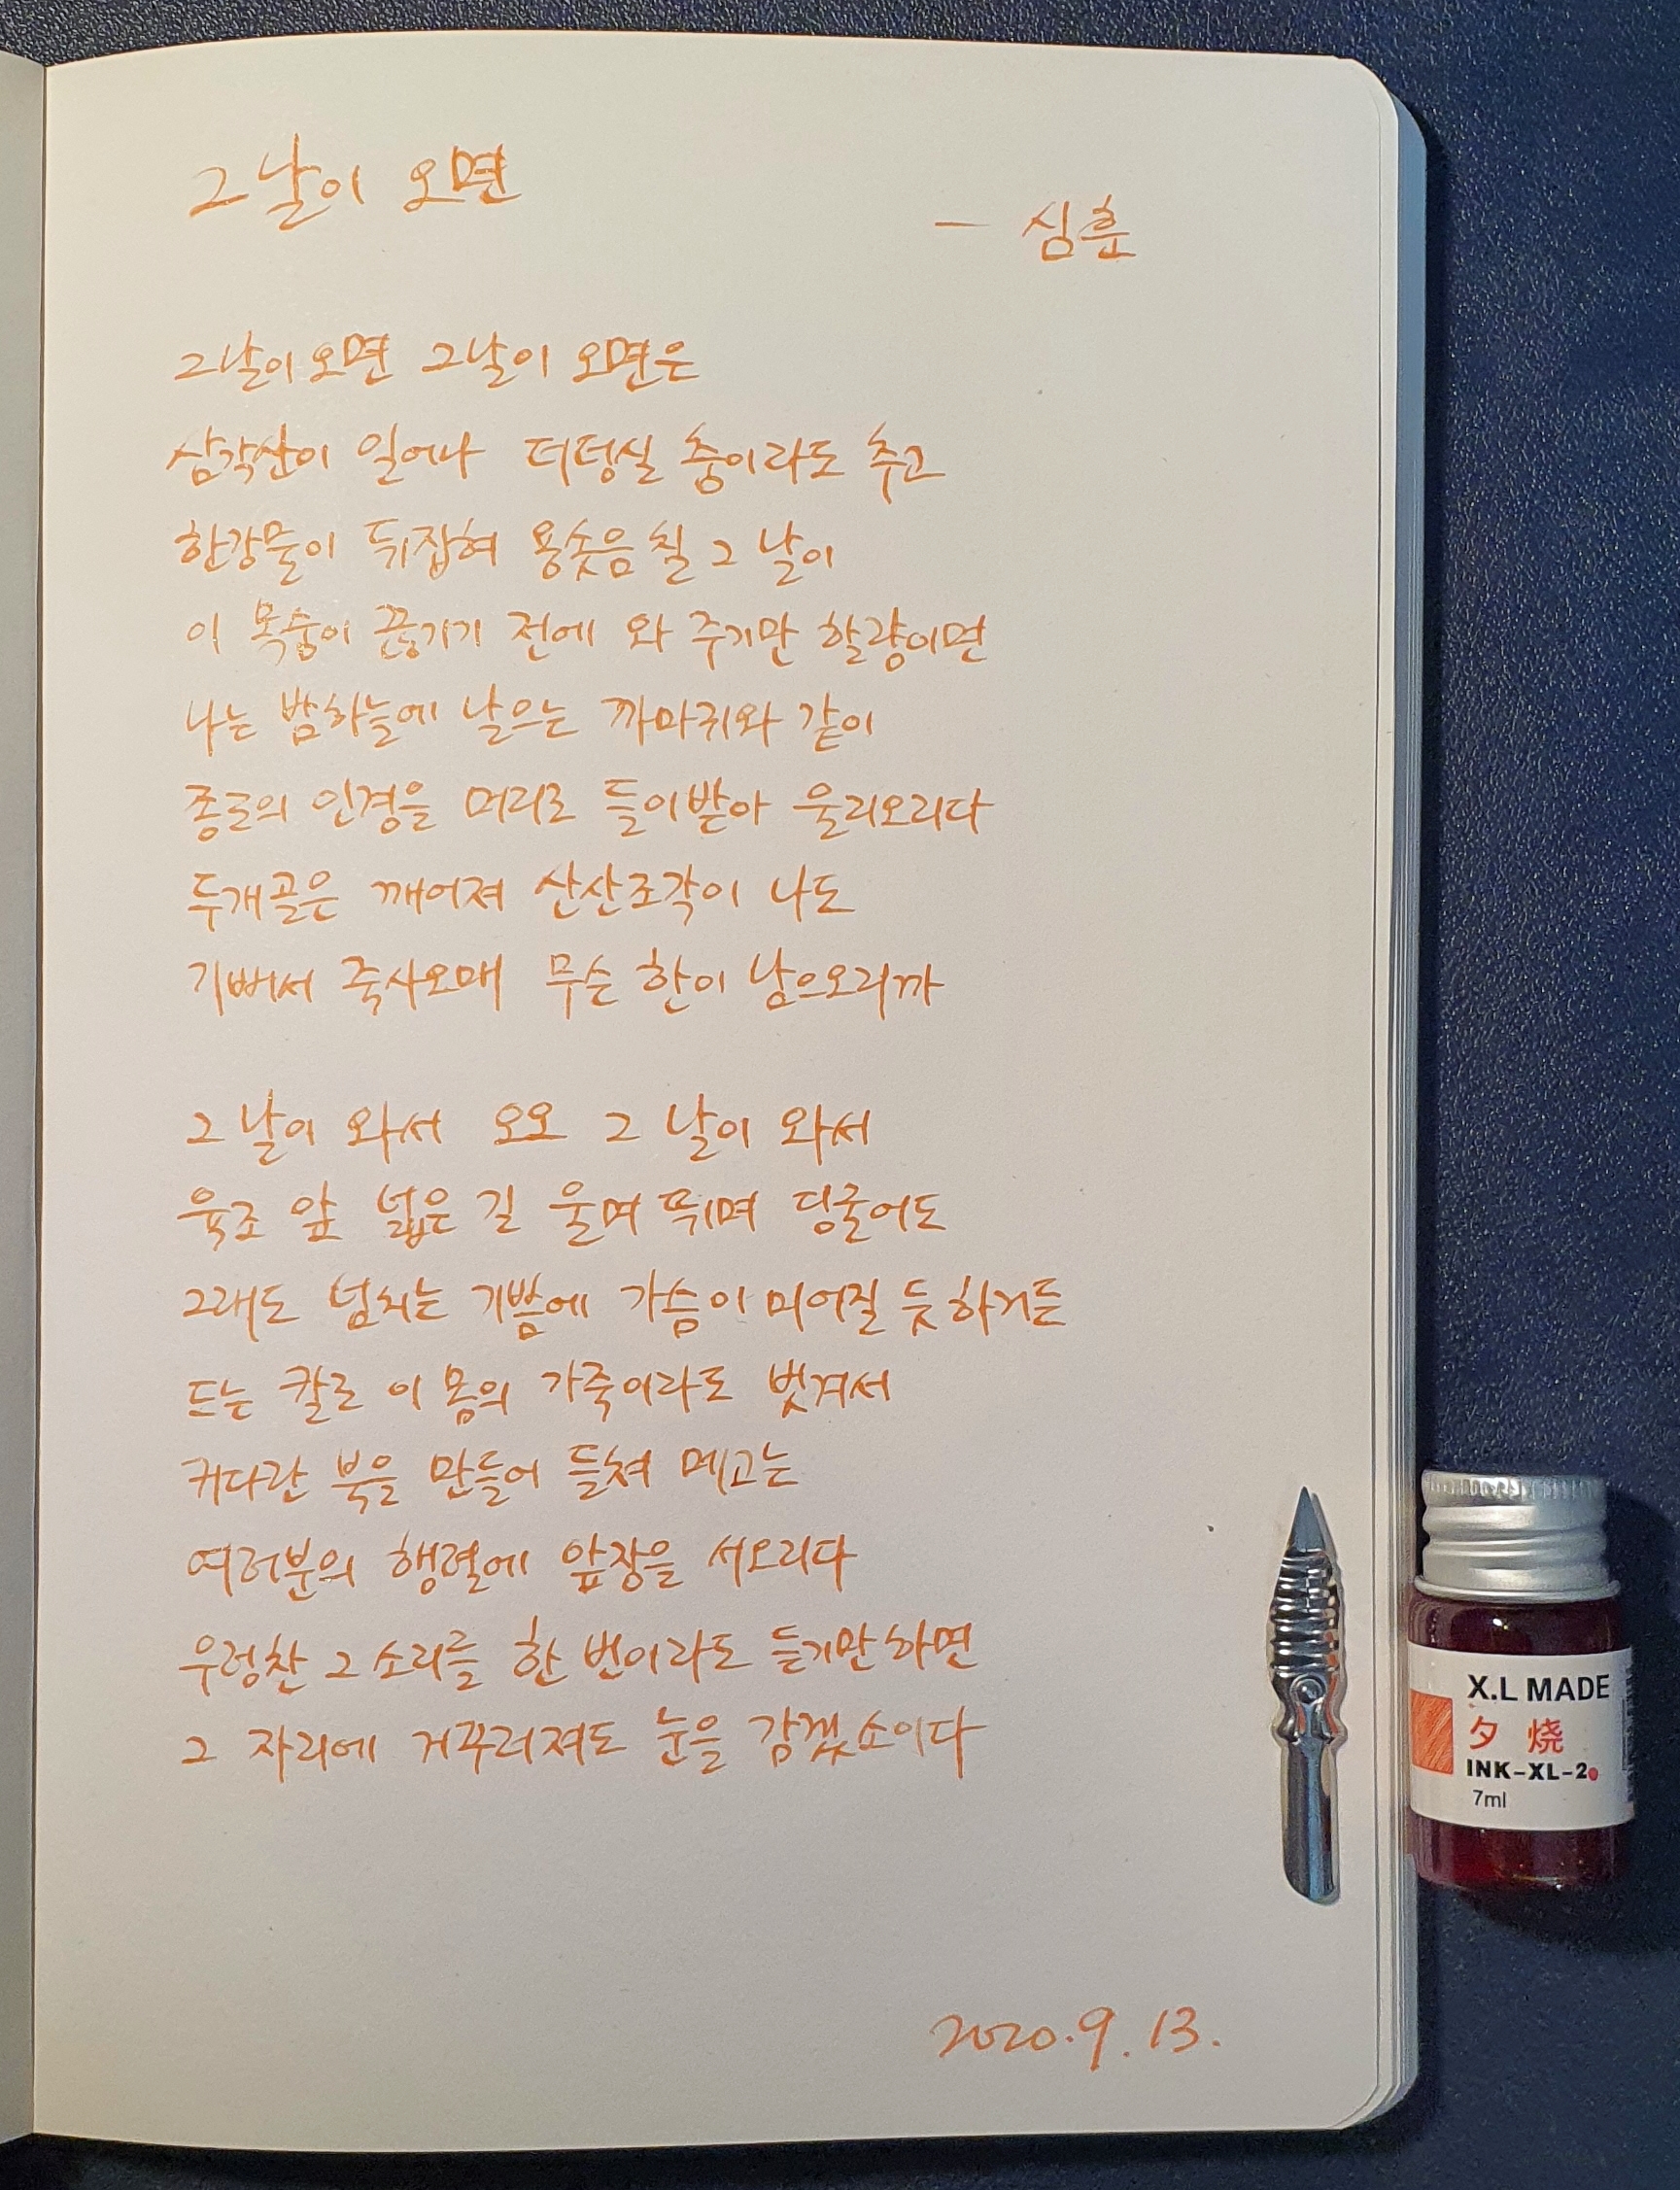 그날이 오면
- 심훈
그날이 오면 그날이 오면은
삼각산이 일어나 더덩실 춤이라도 추고
한강물이 뒤집혀 용솟음칠 그 날이
이 목숨이 끊기기 전에 와 주기만 할량이면
나는 밤하늘에 날으는 까마귀와 같이
종로의 인경을 머리로 들이받아 울리오리다
두개골은 깨어져 산산조각이 나도
기뻐서 죽사오매 무슨 한이 남으오리까
그 날이 와서 오오 그 날이 와서
육조 앞 넓은 길 울며 뛰며 딩굴어도
그래도 넘치는 기쁨에 가슴이 미어질 듯 하거든
드는 칼로 이 몸의 가죽이라도 벗겨서
커다란 북을 만들어 들쳐 메고는
여러분의 행렬에 앞장을 서오리다
우렁찬 그 소리를 한 번이라도 듣기만 하면
그 자리에 거꾸러져도 눈을 감겠소이다
2020.9.13.
X.L MADE
夕 烧
INK-XL-2
7ml